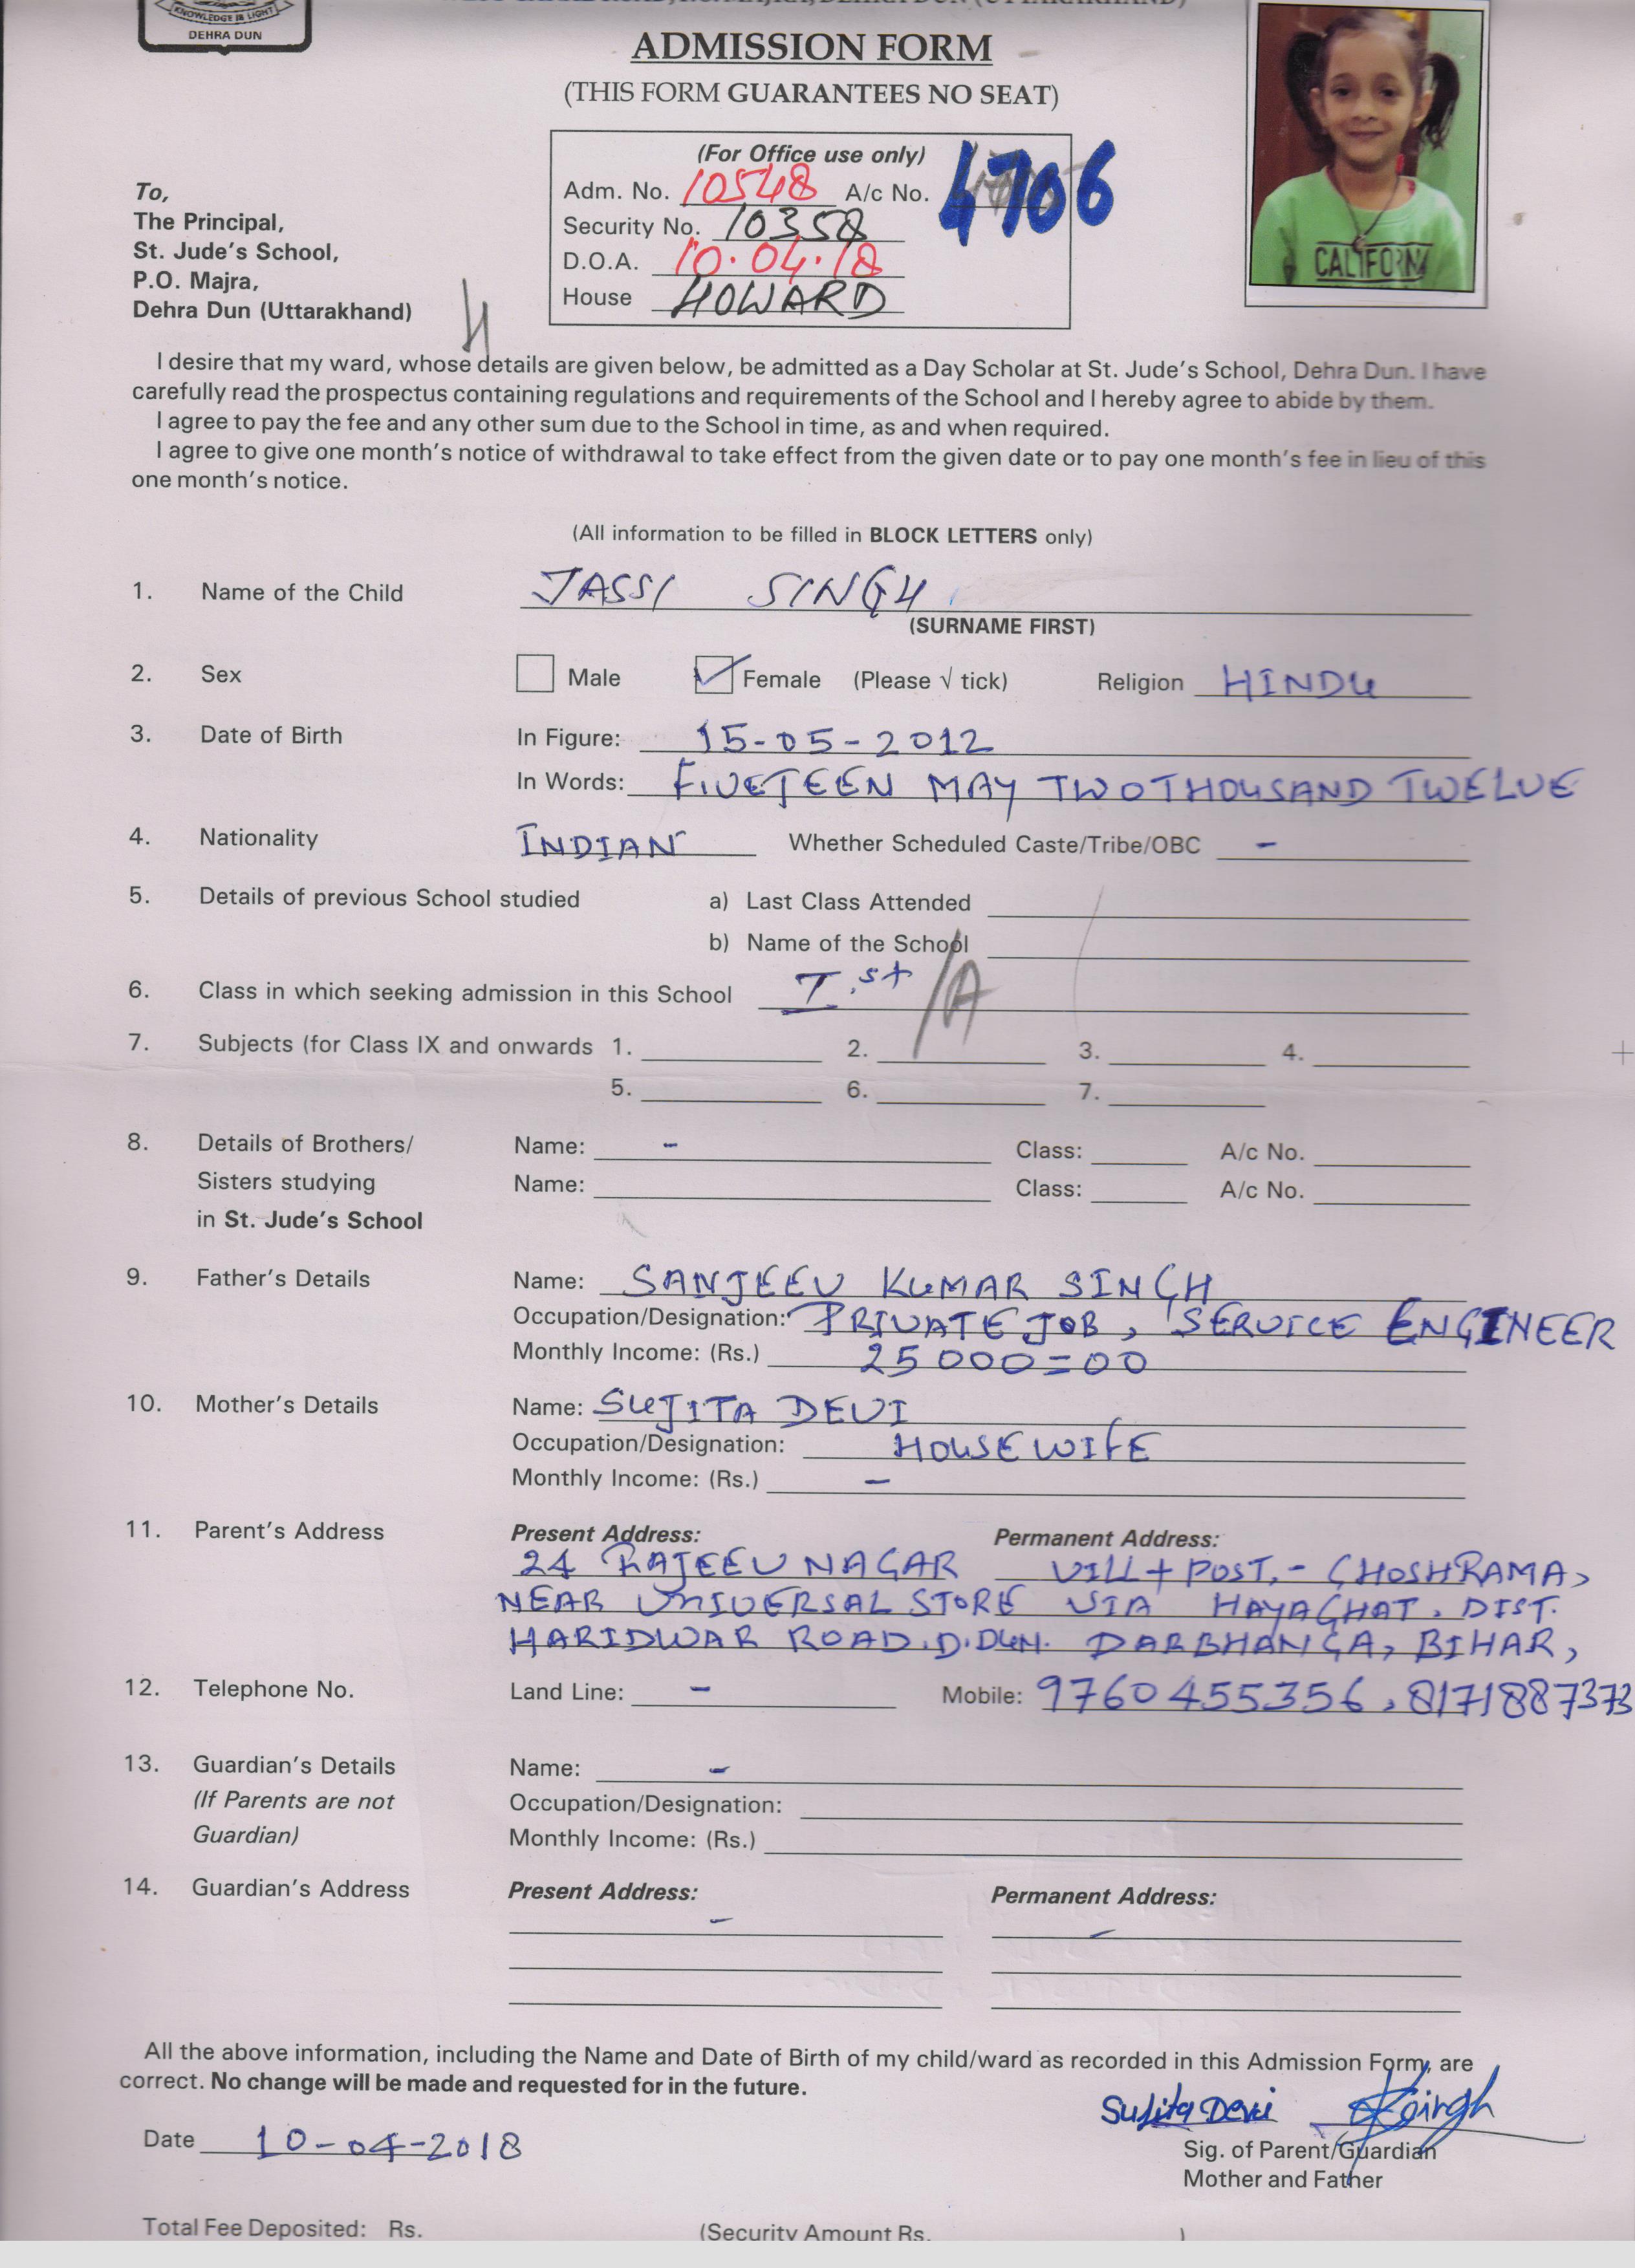 KNOWLEDGE IS LIGHT
DEHRA DUN
ADMISSION FORM
(THIS FORM GUARANTEES NO SEAT)
(For Office use only)
Adm. No. 10548 A/c No. 4706
Security No. 10358
D.O.A. 10.04.18
House HOWARD
CALIFORN
To,
The Principal,
St. Jude's School,
P.O. Majra,
Dehra Dun (Uttarakhand)
I desire that my ward, whose details are given below, be admitted as a Day Scholar at St. Jude's School, Dehra Dun. I have
carefully read the prospectus containing regulations and requirements of the School and I hereby agree to abide by them.
I agree to pay the fee and any other sum due to the School in time, as and when required.
I agree to give one month's notice of withdrawal to take effect from the given date or to pay one month's fee in lieu of this
one month's notice.
(All information to be filled in BLOCK LETTERS only)
1. Name of the Child JASSI SINGH
(SURNAME FIRST)
2. Sex Male Female (Please √ tick) Religion HINDU
3. Date of Birth In Figure: 15-05-2012
In Words: FIVETEEN MAY TWOTHOUSAND TWELVE
4. Nationality INDIAN Whether Scheduled Caste/Tribe/OBC -
5. Details of previous School studied a) Last Class Attended
b) Name of the School
6. Class in which seeking admission in this School I.st /A
7. Subjects (for Class IX and onwards 1. 2. 3. 4.
5. 6. 7.
8. Details of Brothers/ Name: - Class: A/c No.
Sisters studying Name: Class: A/c No.
in St. Jude's School
9. Father's Details Name: SANJEEV KUMAR SINGH
Occupation/Designation: PRIVATE JOB, SERVICE ENGINEER
Monthly Income: (Rs.) 25000=00
10. Mother's Details Name: SUJITA DEVI
Occupation/Designation: HOUSE WIFE
Monthly Income: (Rs.) -
11. Parent's Address Present Address: Permanent Address:
24 RAJEEV NAGAR VILL+POST.- GHOSHRAMA,
NEAR UNIVERSAL STORE VIA HAYAGHAT. DIST.
HARIDWAR ROAD.D.DUN. DARBHANGA, BIHAR,
12. Telephone No. Land Line: - Mobile: 9760455356, 8171887373
13. Guardian's Details Name: -
(If Parents are not Occupation/Designation:
Guardian) Monthly Income: (Rs.)
14. Guardian's Address Present Address: Permanent Address:
- -
All the above information, including the Name and Date of Birth of my child/ward as recorded in this Admission Form, are
correct. No change will be made and requested for in the future.
Sujita Devi Singh
Date 10-04-2018
Sig. of Parent/Guardian
Mother and Father
Total Fee Deposited: Rs. (Security Amount Rs. )